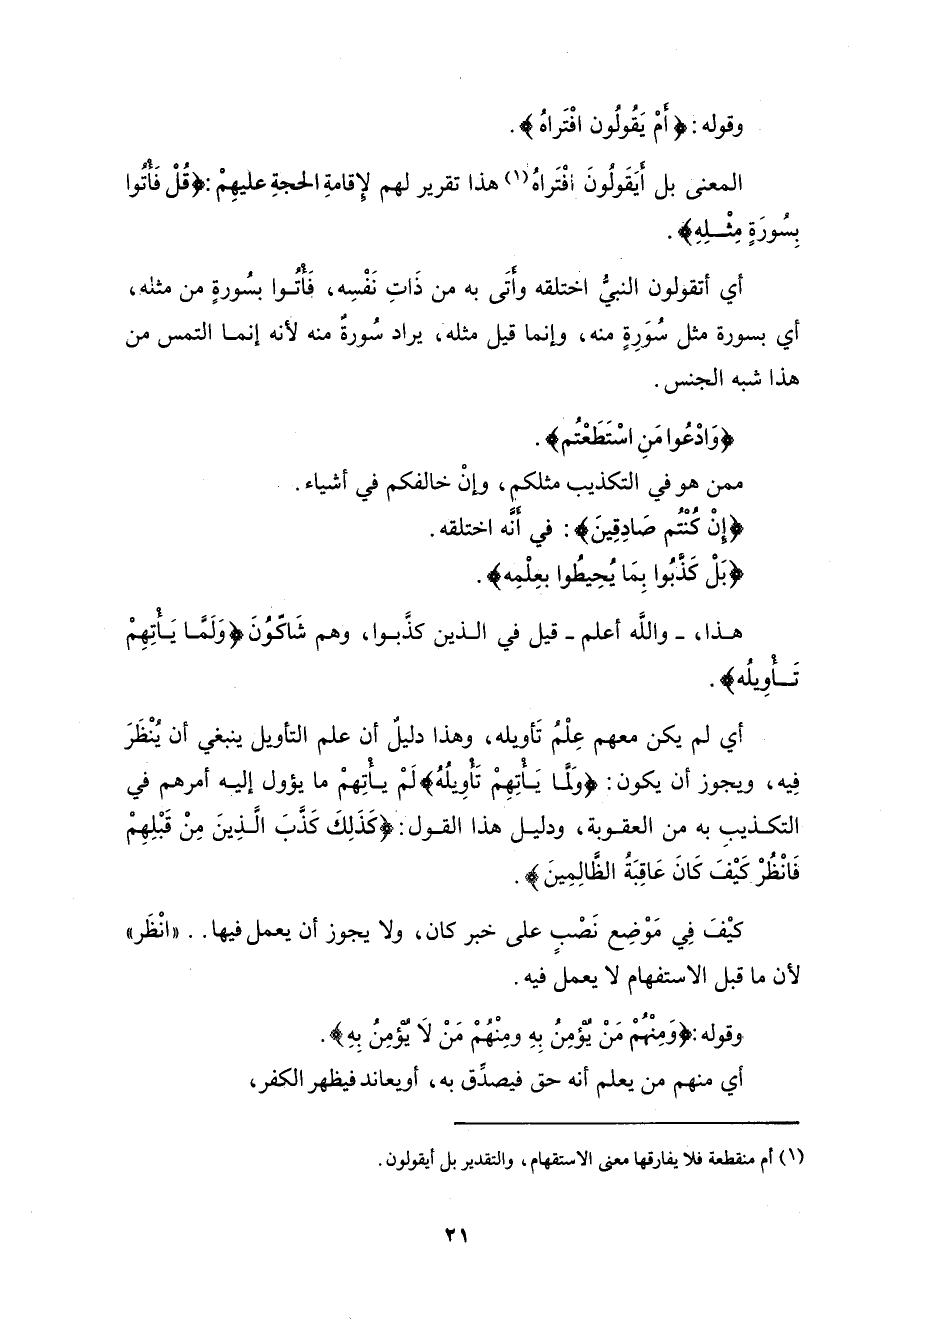 وقوله: ﴿أَمْ يَقُولُون افْتَراهُ﴾.
المعنى بل أَيَقولُونَ افْتَراهُ(١) هذا تقرير لهم لإقامةِ الحجةِ عليهِمْ: ﴿قُلْ فَأْتُوا
بِسُورَةٍ مِثْلِهِ﴾.
أي أتقولون النبيُّ اختلقه وأَتَى به من ذَاتِ نَفْسِه، فَأْتُوا بسُورةٍ من مثله،
أي بسورة مثل سُوَرِةٍ منه، وإنما قيل مثله، يراد سُورةٌ منه لأنه إنما التمس من
هذا شبه الجنس.
﴿وَادْعُوا مَنِ اسْتَطَعْتُم﴾.
ممن هو في التكذيب مثلكم، وإنْ خالفكم في أشياء.
﴿إِنْ كُنْتُم صَادِقِينَ﴾: في أَنَّه اختلقه.
﴿بَلْ كَذَّبُوا بِمَا يُحِيطُوا بعِلْمِه﴾.
هذا، ـ والله أعلم ـ قيل في الذين كذَّبوا، وهم شَاكّونَ ﴿وَلَمَّا يَأْتِهِمْ
تَأْوِيلُه﴾.
أي لم يكن معهم عِلْمُ تَأويله، وهذا دليلٌ أن علم التأويل ينبغي أن يُنْظَرَ
فِيه، ويجوز أن يكون: ﴿وَلَمَّا يَأْتِهِمْ تَأْوِيلُهُ﴾ لَمْ يأْتِهِمْ ما يؤول إليه أمرهم في
التكذيبِ به من العقوبة، ودليل هذا القول: ﴿كَذَلِكَ كَذَّبَ الَّذِينَ مِنْ قَبْلِهِمْ
فَانْظُرْ كَيْفَ كَانَ عَاقِبَةُ الظَّالِمِينَ﴾.
كيْفَ فِي مَوْضِعِ نَصْبٍ على خبر كان، ولا يجوز أن يعمل فيها.. «انْظَر»
لأن ما قبل الاستفهام لا يعمل فيه.
وقوله: ﴿وَمِنْهُمْ مَنْ يُؤْمِنُ بِهِ ومِنْهُمْ مَنْ لَا يُؤْمِنُ بِهِ﴾.
أي منهم من يعلم أنه حق فيصدِّق به، أويعاند فيظهر الكفر،
(١) أم منقطعة فلا يفارقها معنى الاستفهام، والتقدير بل أيقولون.
٢١